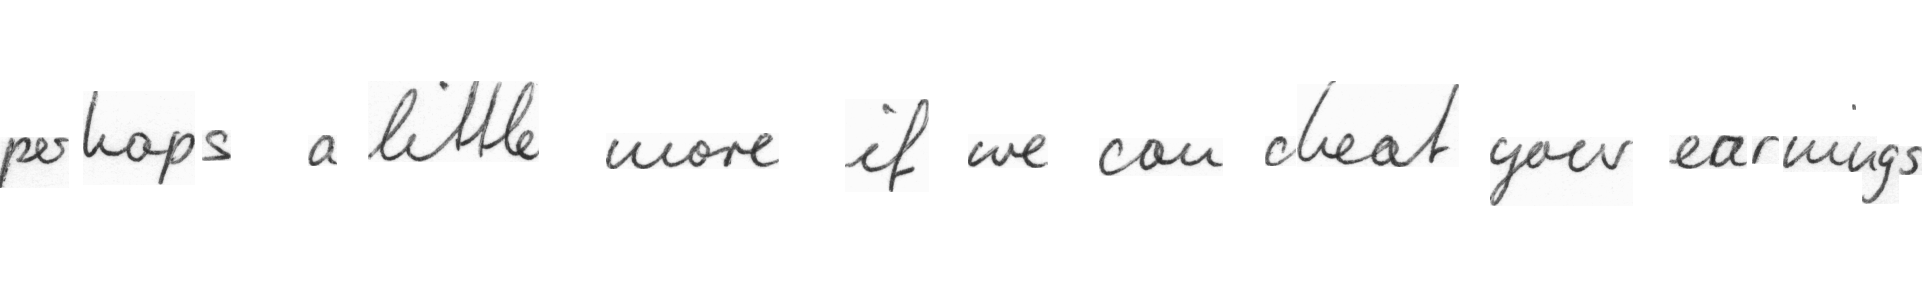 perhaps a little more if we can cheat your earnings